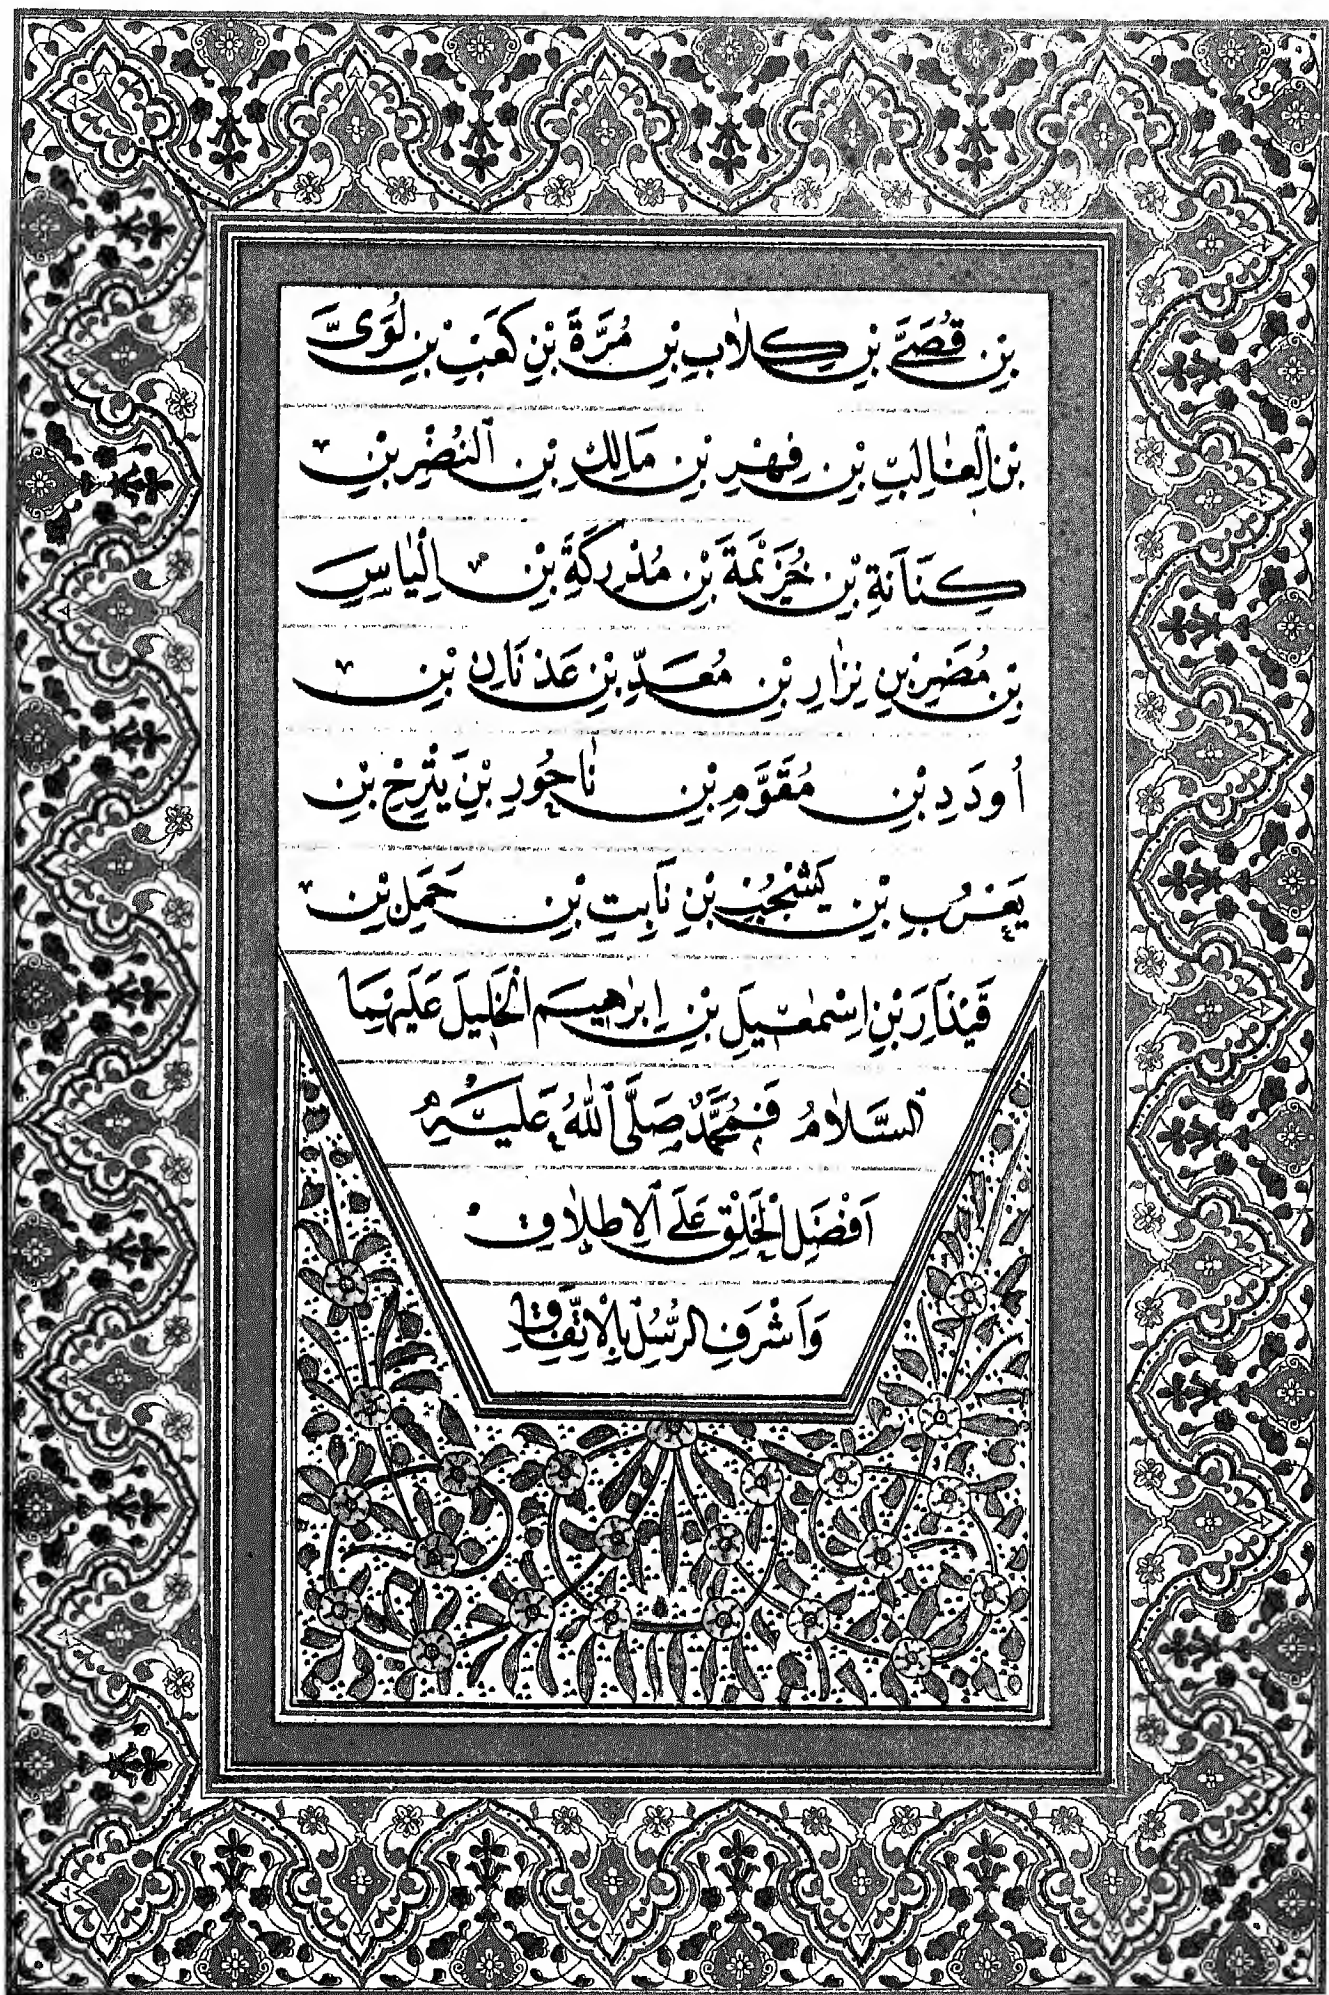 بْنِ قُصَيَّ بْنِ كِلاٰبِ بْنِ مُرَّةَ بْنِ كَعَبْ بْنِ لُوَىَّ
بْنِ الْغٰالِبِ بْنِ فِهْرِ بْنِ مَالِكِ بْنِ النُضْرِ بْنِ
كِنَانَةِ بْنِ خُزَيْمَةَ بْنِ مُدْرِكَةَ بْنِ اِلْيٰاسِ
بْنِ مُضَرِ بْنِ نِزٰارِ بْنِ مُعَدِّ بْنِ عَدْنَانِ بْنِ
اُودَدِ بْنِ مُقَوَّمِ بْنِ نٰاحُورِ بْنَ يَتْرِخِ بْنِ
يَعْرُبِ بْنِ يَشْجُبِ بْنِ نَابِتِ بْنِ حَمَلِ بْنِ
قَيْذَارَ بْنِ اِسْمٰعِيلِ بْنِ اِبْرٰاهِيمَ الْخَلِيلَ عَلَيْهِمَا
السَّلاٰمُ فَمُحَمَّدٌ صَلَّى اللّٰهُ عَلَيْهِ
اَفْضَلِ الْخَلْقِ عَلَى الْاِطْلاٰقِ
وَاَشْرَفِ الرُّسُلِ بِالْاِتِّفَاقِ